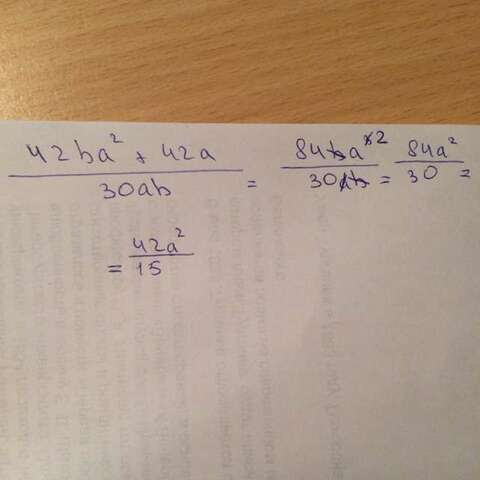 42ba² + 42a / 30ab = 84ba³² / 30ab = 84a² / 30 =
= 42a² / 15